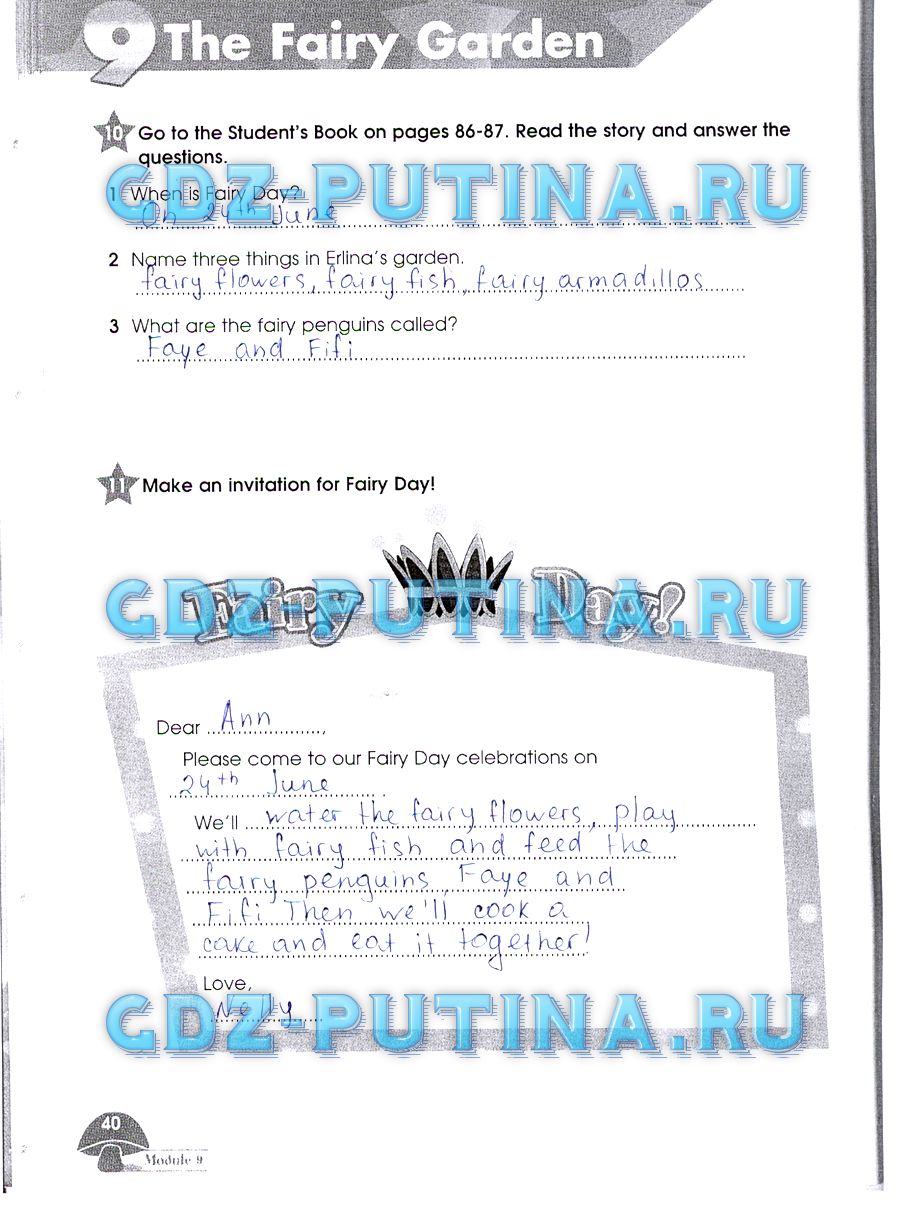 9 The Fairy Garden
10 Go to the Student's Book on pages 86-87. Read the story and answer the
questions.
GDZ-PUTINA.RU
1 When is Fairy Day?
On 24th June
2 Name three things in Erlina's garden.
fairy flowers, fairy fish, fairy armadillos
3 What are the fairy penguins called?
Faye and Fifi
11 Make an invitation for Fairy Day!
Fairy Day!
GDZ-PUTINA.RU
Dear Ann,
Please come to our Fairy Day celebrations on
24th June.
We'll water the fairy flowers, play
with fairy fish and feed the
fairy penguins, Faye and
Fifi Then we'll cook a
cake and eat it together!
Love,
Nelly
GDZ-PUTINA.RU
40
Module 9